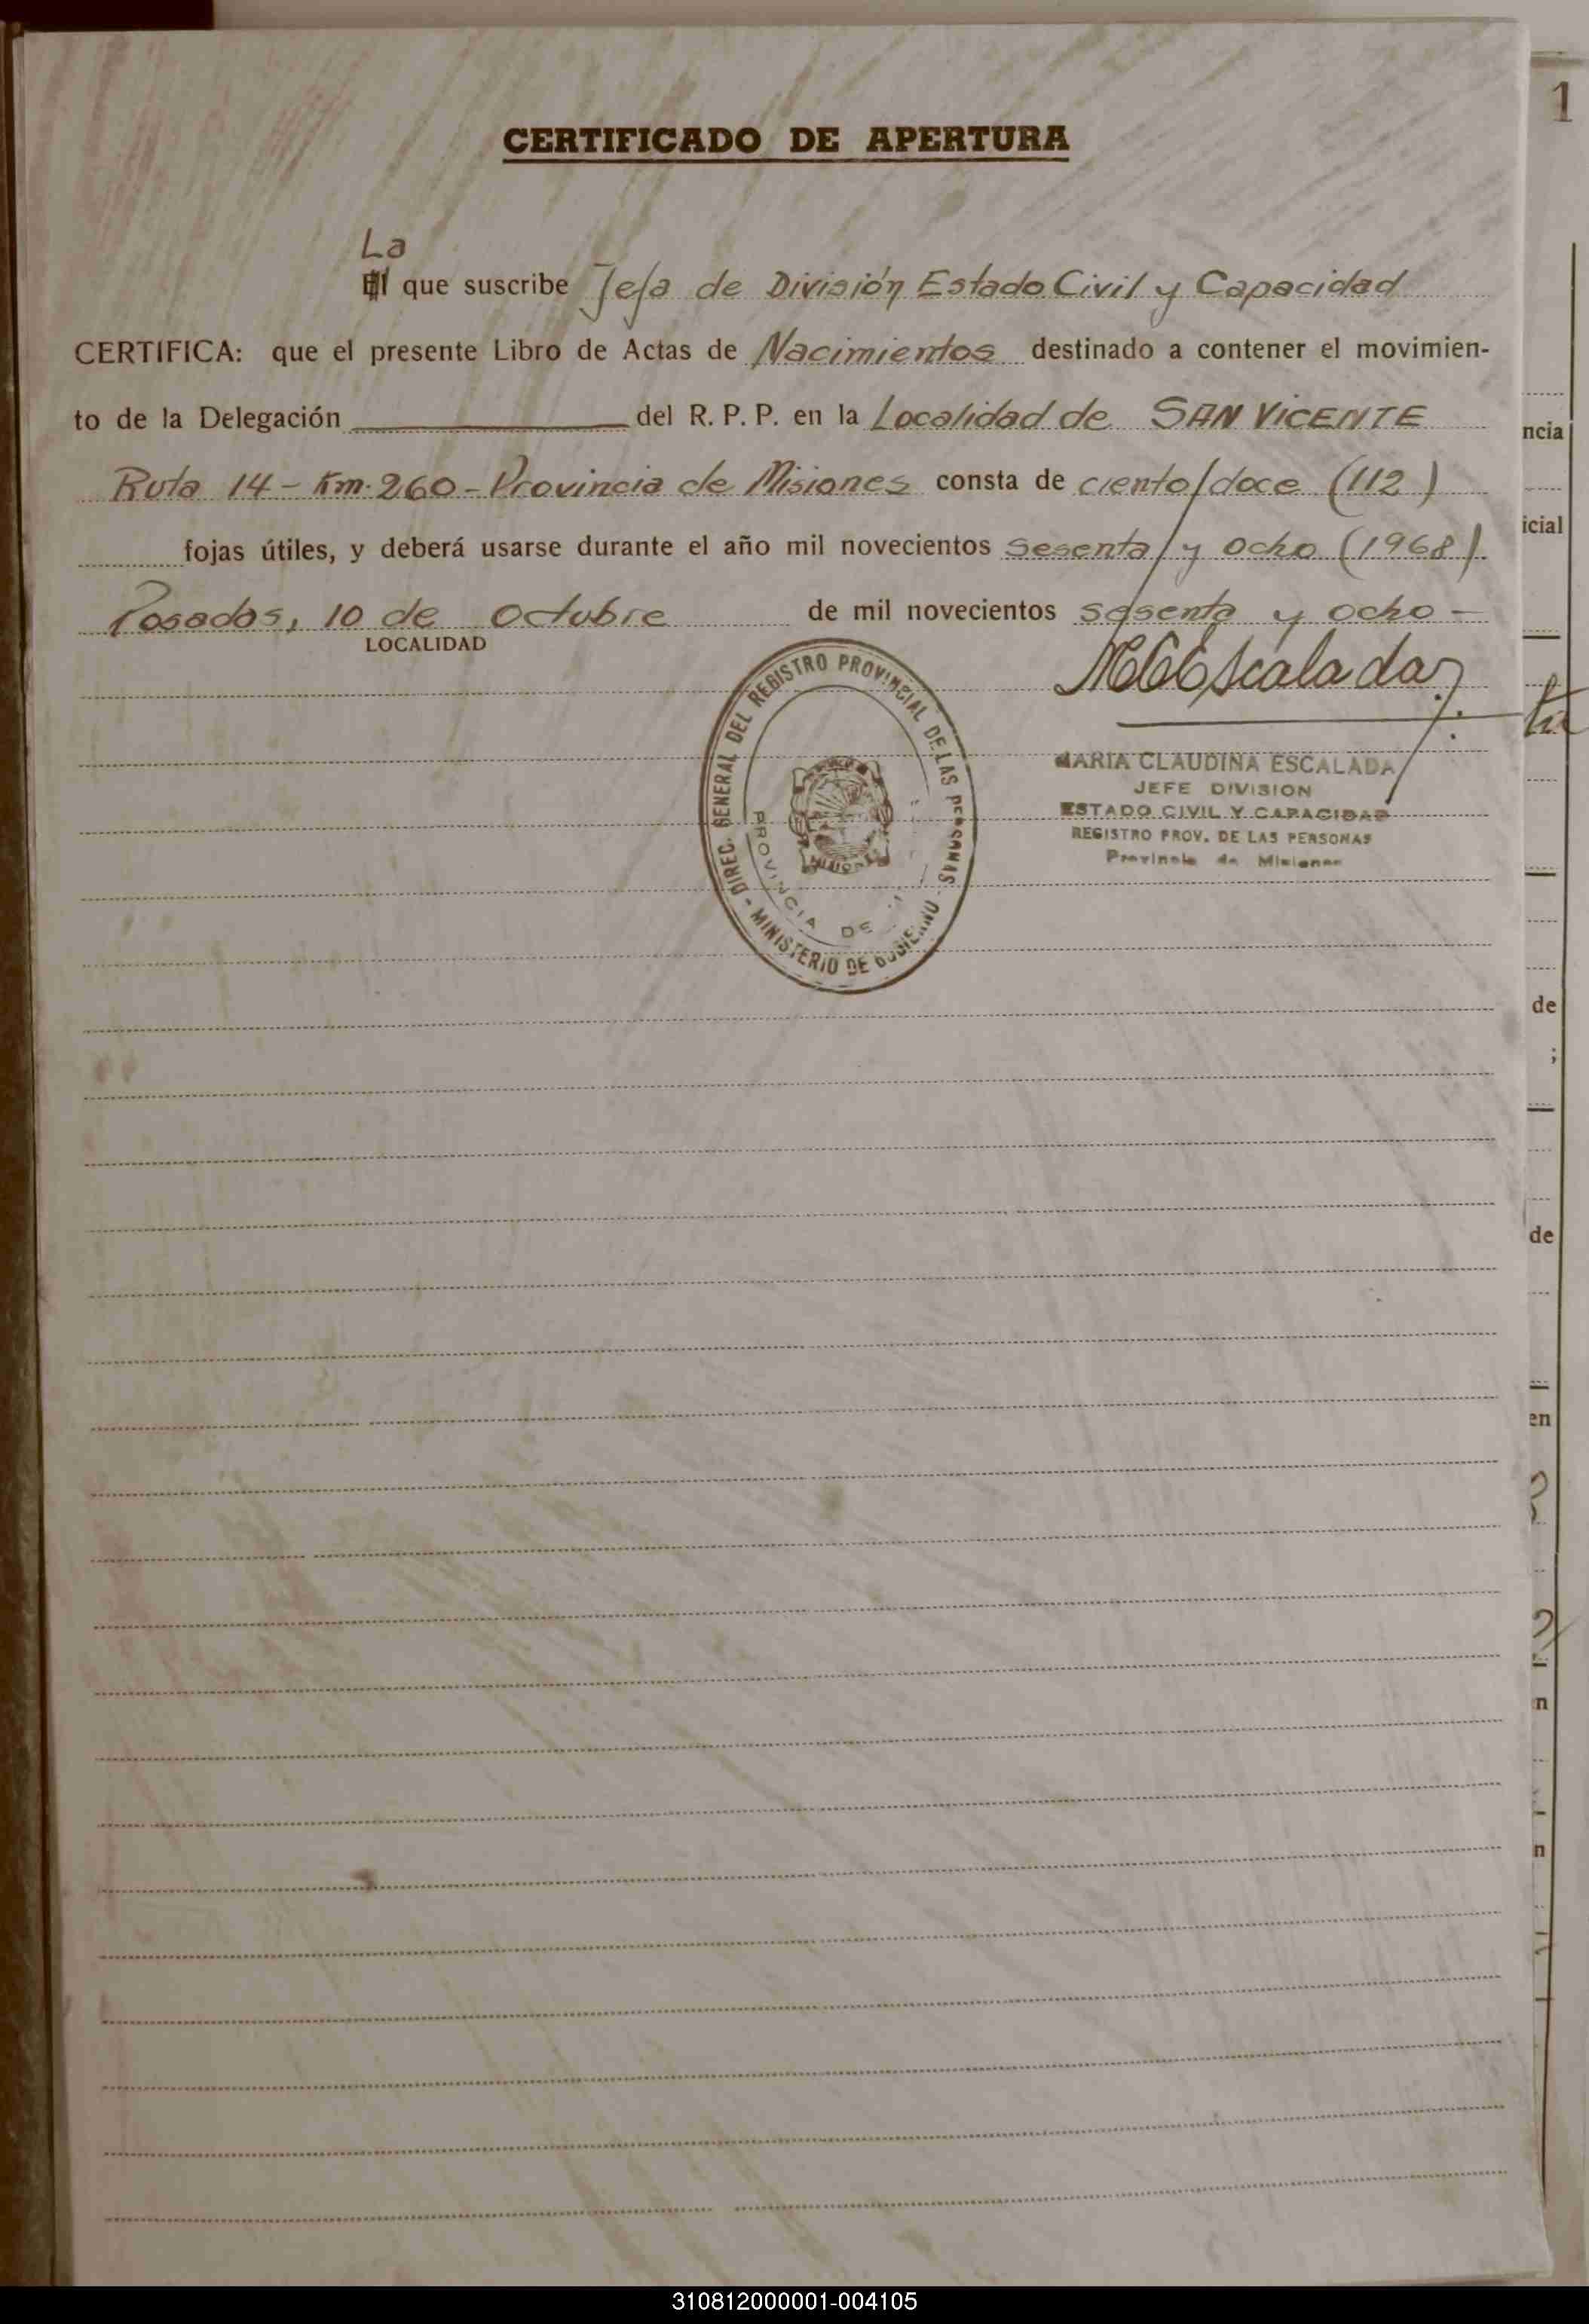 CERTIFICADO DE APERTURA
1
La
El que suscribe Jefa de División Estado Civil y Capacidad
CERTIFICA: que el presente Libro de Actas de Nacimientos destinado a contener el movimien-
to de la Delegación del R. P. P. en la Localidad de SAN VICENTE
ncia
Ruta 14 - Km. 260 - Provincia de Misiones consta de ciento/doce (112)
icial
fojas útiles, y deberá usarse durante el año mil novecientos sesenta y ocho (1968)
Posadas, 10 de Octubre de mil novecientos sesenta y ocho -
LOCALIDAD
MCEscalada
DIREC. GENERAL DEL REGISTRO PROVINCIAL DE LAS PERSONAS - MINISTERIO DE GOBIERNO
PROVINCIA DE
MISIONES
MARIA CLAUDINA ESCALADA
JEFE DIVISION
ESTADO CIVIL Y CAPACIDAD
REGISTRO PROV. DE LAS PERSONAS
Provincia de Misiones
de
;
de
en
n
n
310812000001-004105